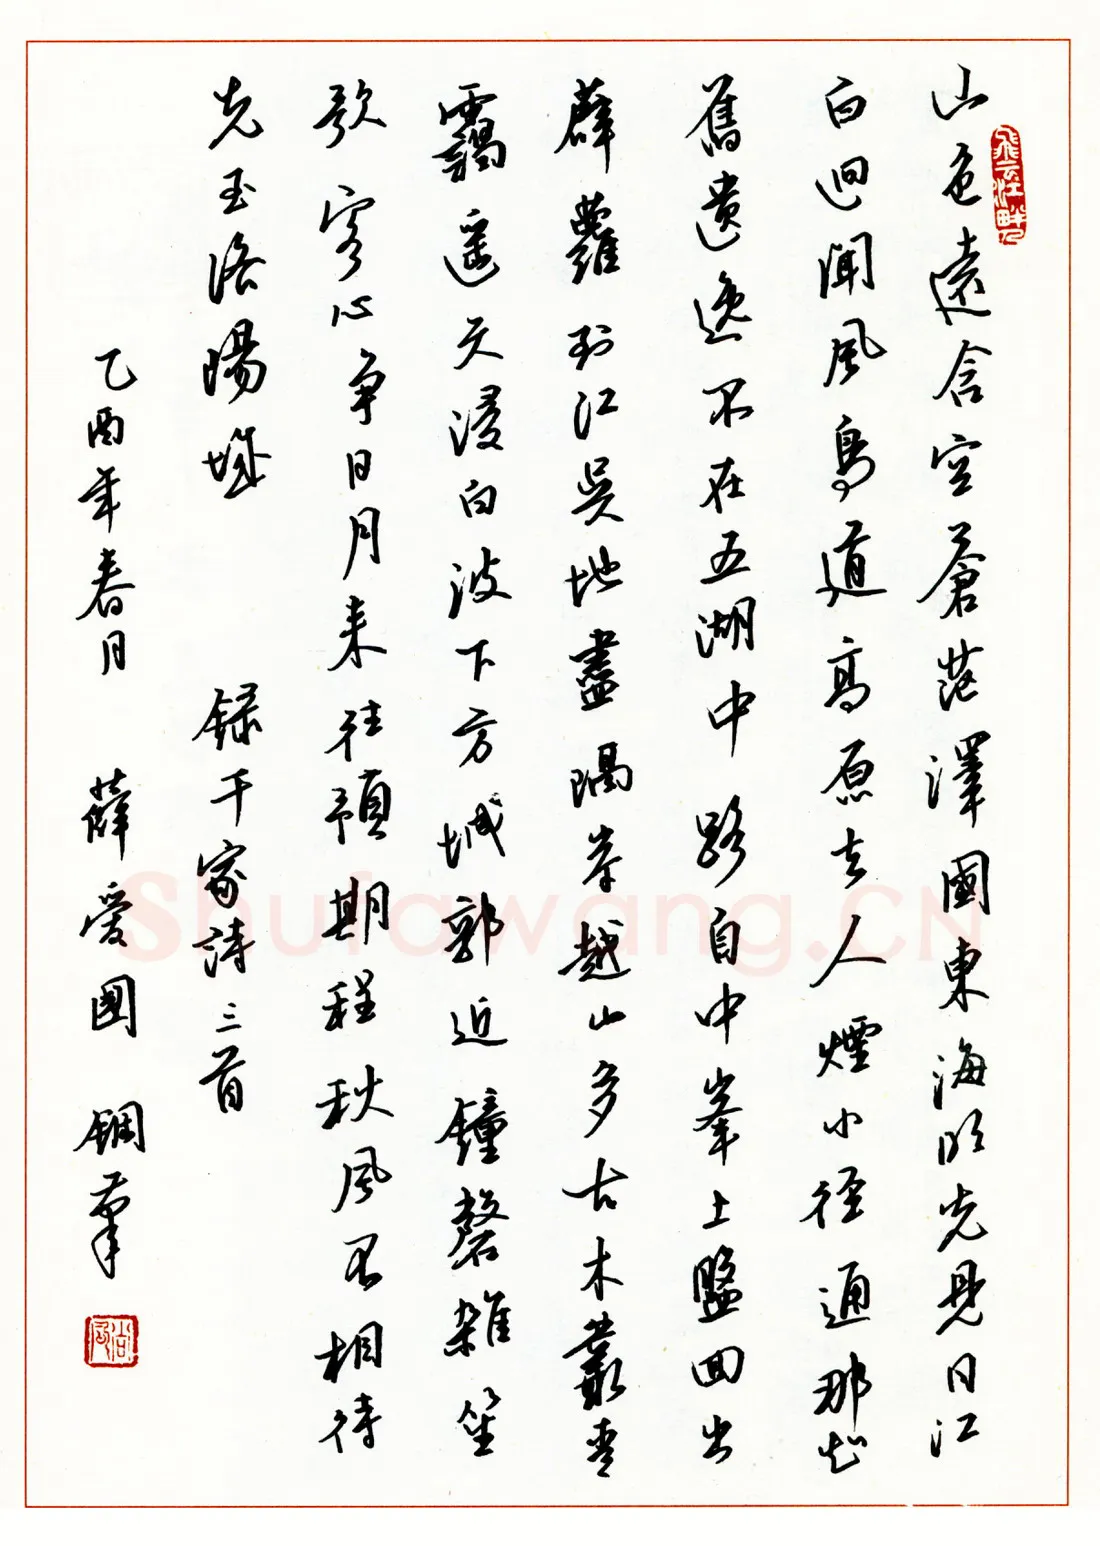 山色遠含空蒼茫澤國東海明先見日江
白迥聞風鳥道高原去人煙小徑通那知
舊遺逸不在五湖中路自中峯上盤回出
薜蘿到江吳地盡隔岸越山多古木叢青
靄遥天浸白波下方城郭近鐘磬雜笙
歌客心争日月来往預期程秋風不相待
先至洛陽城 録千家詩三首
乙酉年春月 薛爱國 鋼筆
飛云江畔
Shufawang.CN